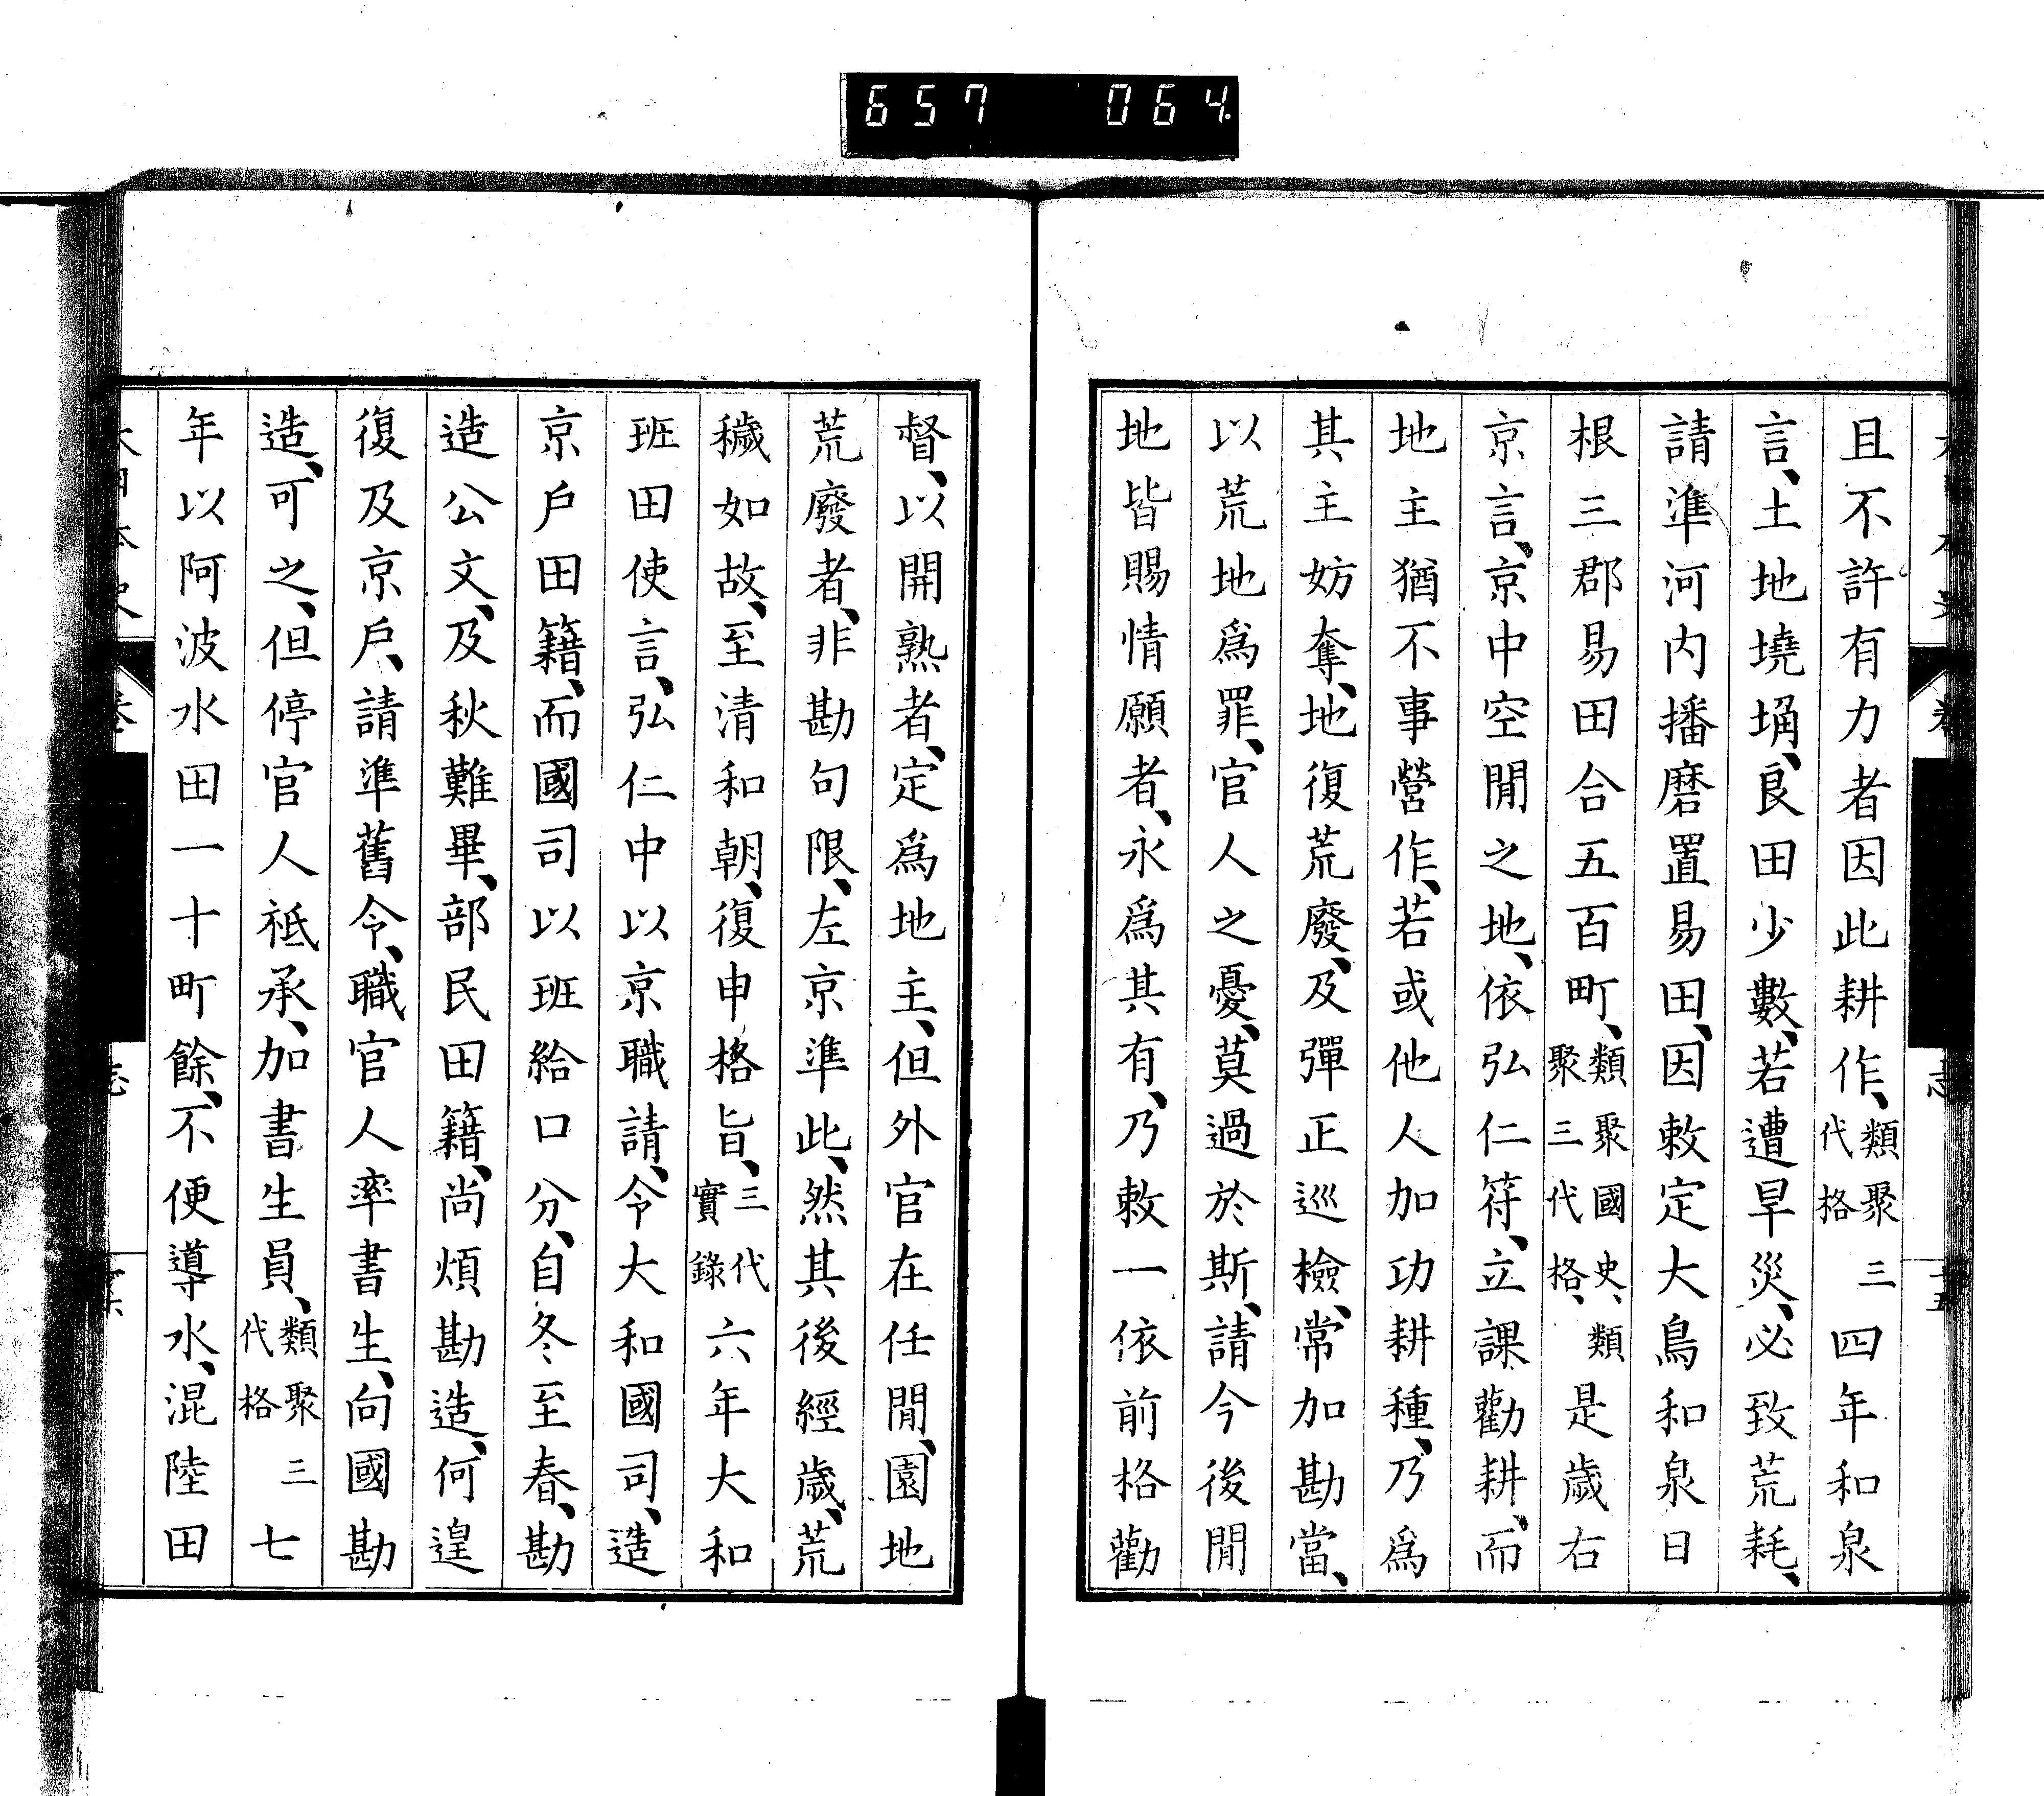 657 064
且不許有力者因此耕作、類聚三代格四年和泉
言、土地墝埆、良田少數、若遭旱災、必致荒耗、
請準河内播磨置易田、因敕定大鳥和泉日
根三郡易田合五百町、類聚國史、類聚三代格、是歲右
京言、京中空閒之地、依弘仁符、立課勸耕、而
地主猶不事營作、若或他人加功耕種、乃爲
其主妨奪、地復荒廢、及彈正巡檢、常加勘當、
以荒地爲罪、官人之憂、莫過於斯、請今後閒
地皆賜情願者、永爲其有、乃敕一依前格勸
督、以開熟者、定爲地主、但外官在任閒、園地
荒廢者、非勘句限、左京準此、然其後經歲、荒
穢如故、至清和朝、復申格旨、三代實錄六年大和
班田使言、弘仁中以京職請、令大和國司、造
京戶田籍、而國司以班給口分、自冬至春、勘
造公文、及秋難畢、部民田籍、尚煩勘造、何遑
復及京戶、請準舊令、職官人率書生、向國勘
造、可之、但停官人祗承、加書生員、類聚三代格七
年以阿波水田一十町餘、不便導水、混陸田